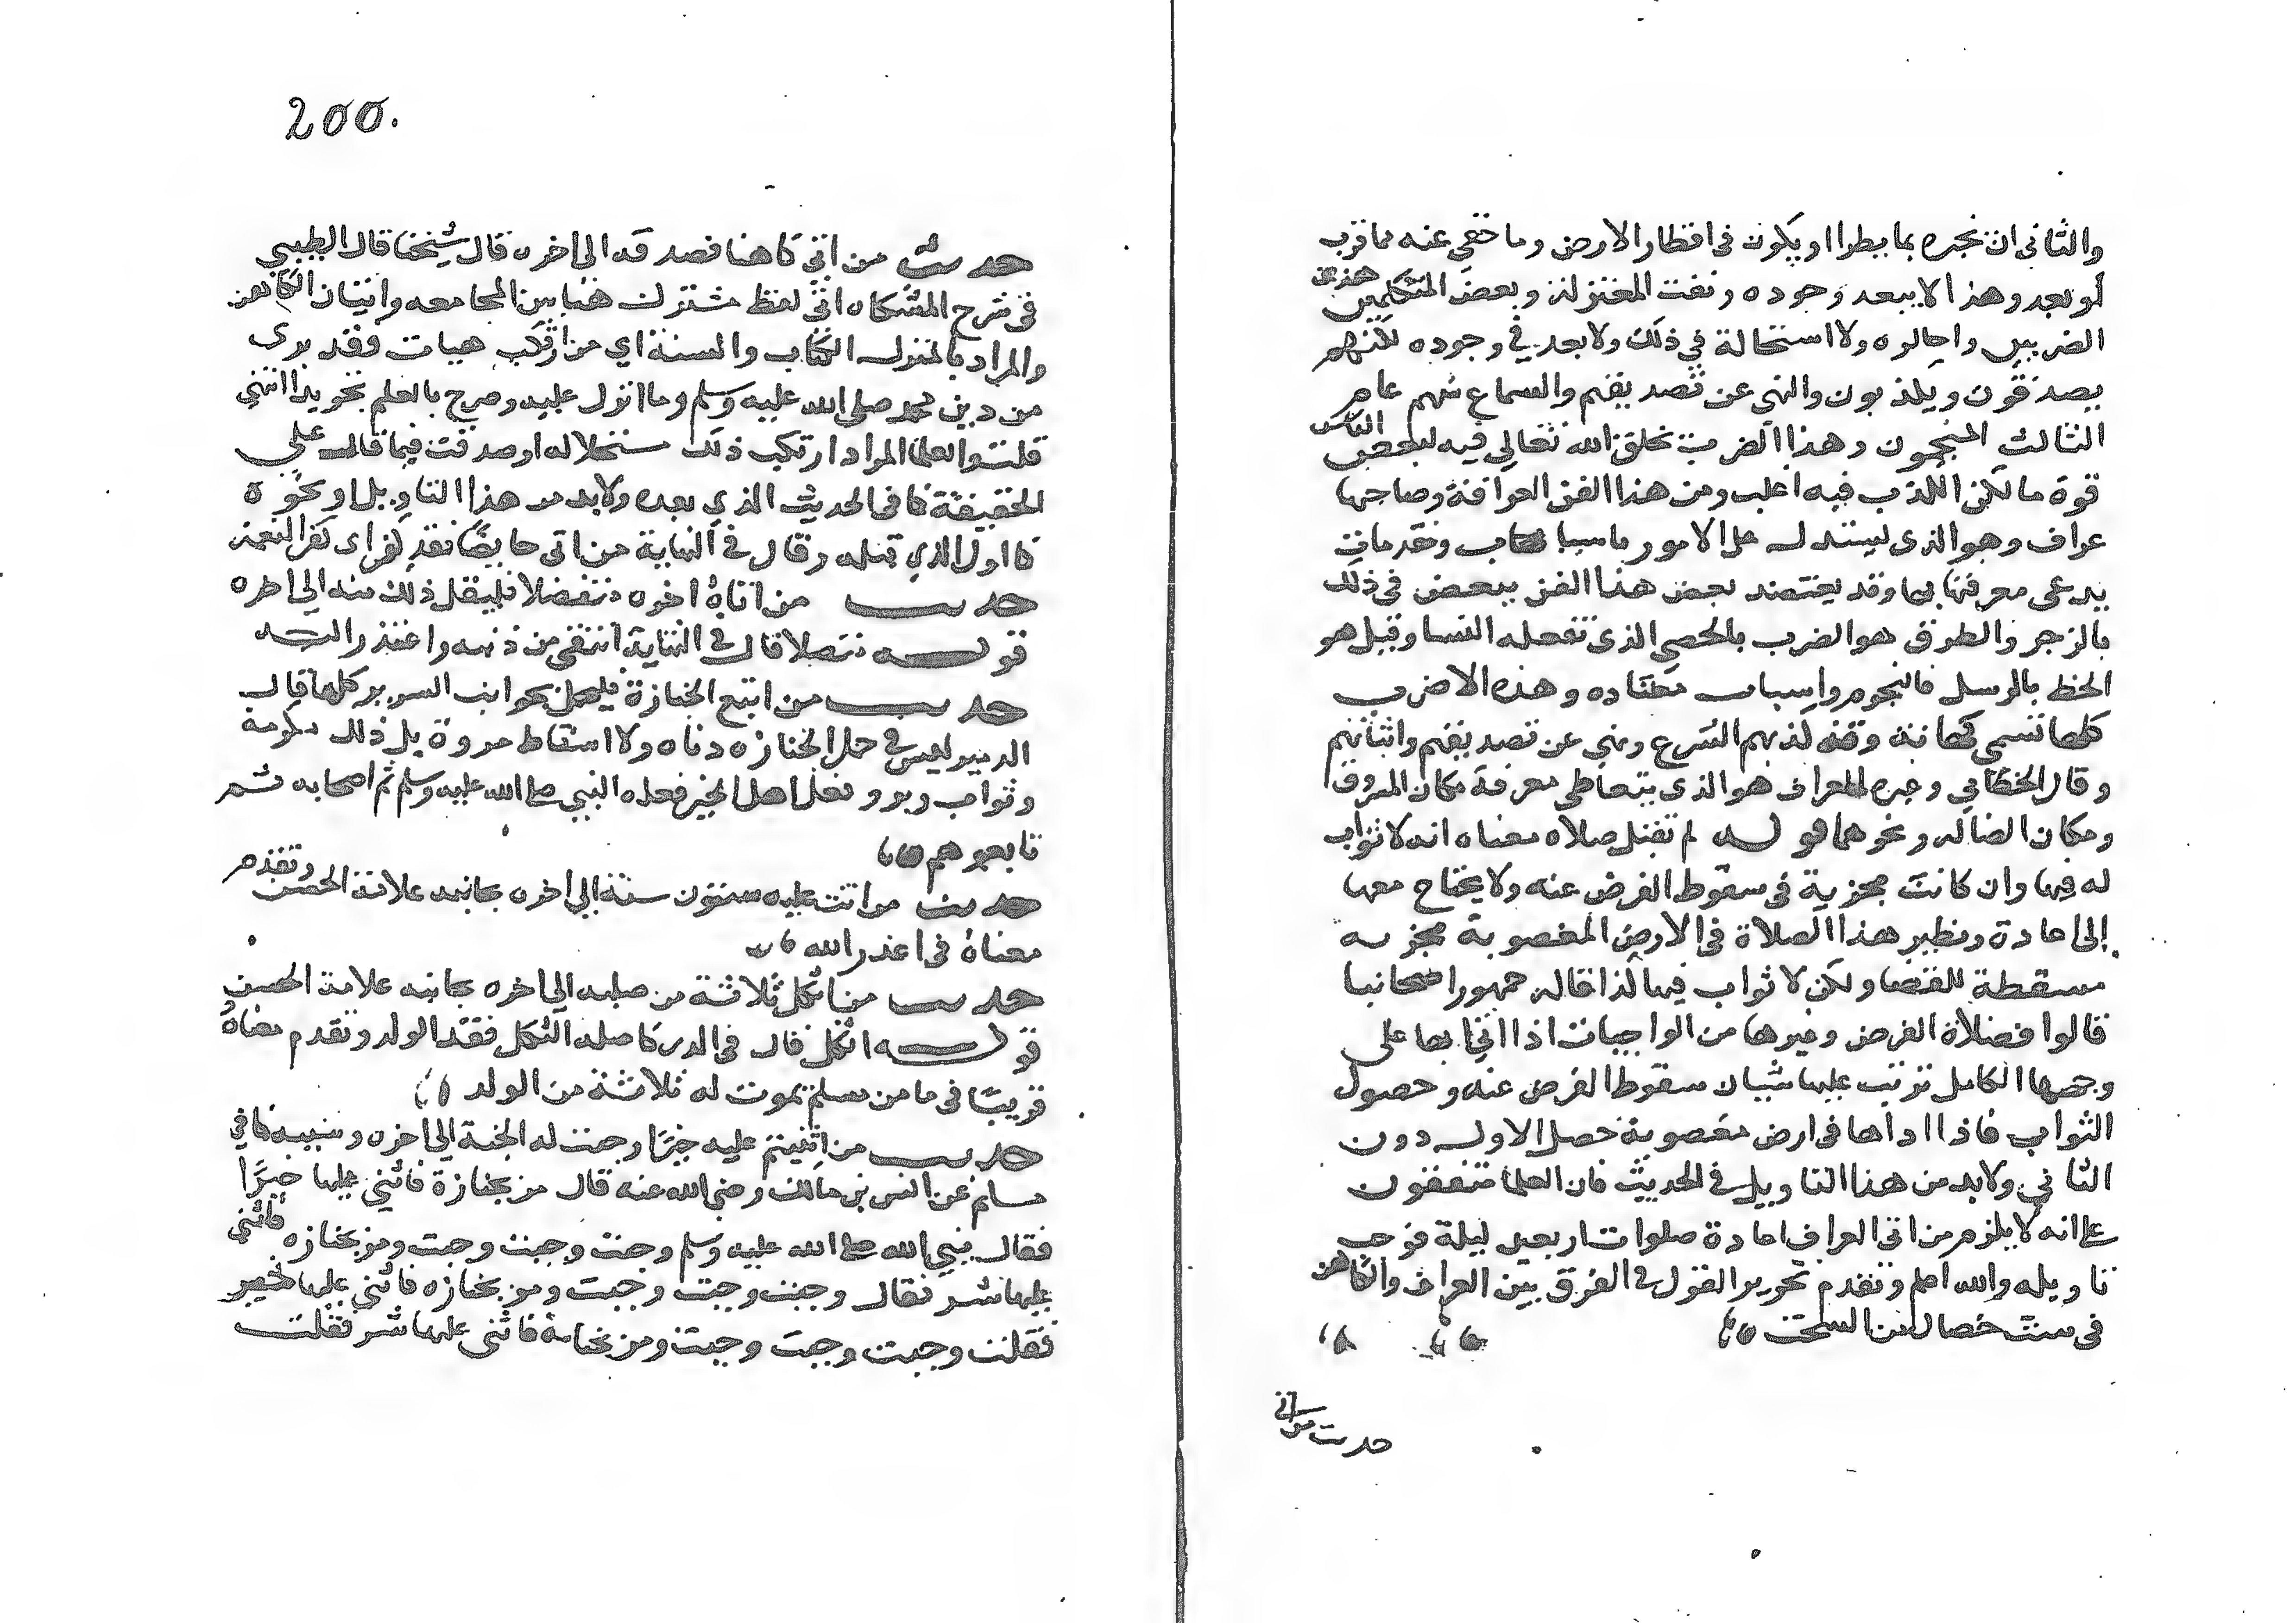 والثانى ان يخبره بما يطرا او يكون فى اقطار الارض وما خفى عنه مما قرب
او بعد وهذا لا يبعد وجوده ونفت المعتزلة وبعض المتكلمين هذين
الضربين واحالوه ولا استحالة في ذلك ولا بعد في وجوده لكنهم
يصدقون ويكذبون والنهى عن تصديقهم والسماع منهم عام
الثالث المنجمون وهذا الضرب يخلق الله تعالى فيه لبعض الناس
قوة ما لكن الكذب فيه اغلب ومن هذا الفن العرافة وصاحبها
عراف وهو الذى يستدل على الامور باسباب ومقدمات
يدعى معرفتها بها وقد يعتضد بعض هذا الفن ببعض فى ذلك
بالزجر والطرق هو الضرب بالحصى الذى تفعله النسا وقيل هو
الخط بالرمل والنجوم واسباب معتاده وهذه الاضرب
كلها تسمى كهانة وقد اكذبهم الشرع ونهى عن تصديقهم واتيانهم
وقال الخطابي وغيره العراف هو الذى يتعاطى معرفة مكان المسروق
ومكان الضاله ونحوهما قوله لم تقبل صلاه معناه انه لا ثواب
له فيها وان كانت مجزية فى سقوط الفرض عنه ولا يحتاج معها
إلى اعادة ونظير هذا الصلاة فى الارض المغصوبة مجزيه
مسقطة للقضا ولكن لا ثواب فيها كذا قاله جمهور اصحابنا
قالوا فصلاة الفرض وغيرها من الواجبات اذا اتى بها على
وجهها الكامل ترتب عليها شيان سقوط الفرض عنه وحصول
الثواب فاذا اداها فى ارض مغصوبة حصل الاول دون
الثاني ولابد من هذا التاويل فى الحديث فان العلما متفقون
على انه لا يلزم من اتى العراف اعادة صلوات اربعين ليلة فوجب
تاويله والله اعلم وتقدم تحرير القول فى الفرق بين العراف والكاهن
فى ست خصال من السحت
حديث من اتى
200.
حديث من اتى كاهنا فصدقه الى اخره قال شيخنا قال الطيبي
فى شرح المشكاه اتى لفظ مشترك هنا بين المجامعه واتيان الكاهن
والمراد بالمنزل الكتاب والسنة اي من ارتكب هيات فقد برى
من دين محمد صلى الله عليه وسلم وما انزل عليه وصرح بالعلم بتحريد انتهى
قلت ولعل المراد ارتكب ذلك مستحلا له او صدقت فيما قال على
الحقيقة كما فى الحديث الذي بعده ولابد من هذا التاويل او نحوه
كما اول الذي قبله وقال في النهاية من اتى حايضا فقد كفر اى كفر النعمة
حديث من اتاه اخوه متنصلا فليقبل ذلك منه الى اخره
قوله متنصلا قال فى النهاية انتفى من ذنبه واعتذر اليه
حديث من اتبع الجنازة فليحمل بجوانب السرير كلها قال
الدميري ليس فى حمل الجنازه دناه ولا اسقاط مروة بل ذلك مكرمة
وثواب وبر وفعل اهل الخير فعله النبي صلى الله عليه وسلم ثم اصحابه ثم
تابعوهم
حديث من اتت عليه ستون سنة الي اخره بجانبه علامة الحسن وتقدم
معناه فى اعذر الله
حديث من اثكل ثلاثة من صلبه الى اخره بجانبه علامة الحسن
قوله اثكل قال فى الدر كاصله الثكل فقد الولد وتقدم معناه
قريبا فى ما من مسلم يموت له ثلاثة من الولد
حديث من اثنيتم عليه خيرا وجبت له الجنة الى اخره وسببه كما في
مسلم عن انس بن مالك رضي الله عنه قال مر بجنازة فاثني عليها خيرا
فقال نبي الله صلى الله عليه وسلم وجبت وجبت وجبت ومر بجنازه فاثني
عليها شر فقال وجبت وجبت وجبت ومر بجنازه فاثني عليها خير
فقلت وجبت وجبت وجبت ومر بجنازة فاثنى عليها شر فقلت